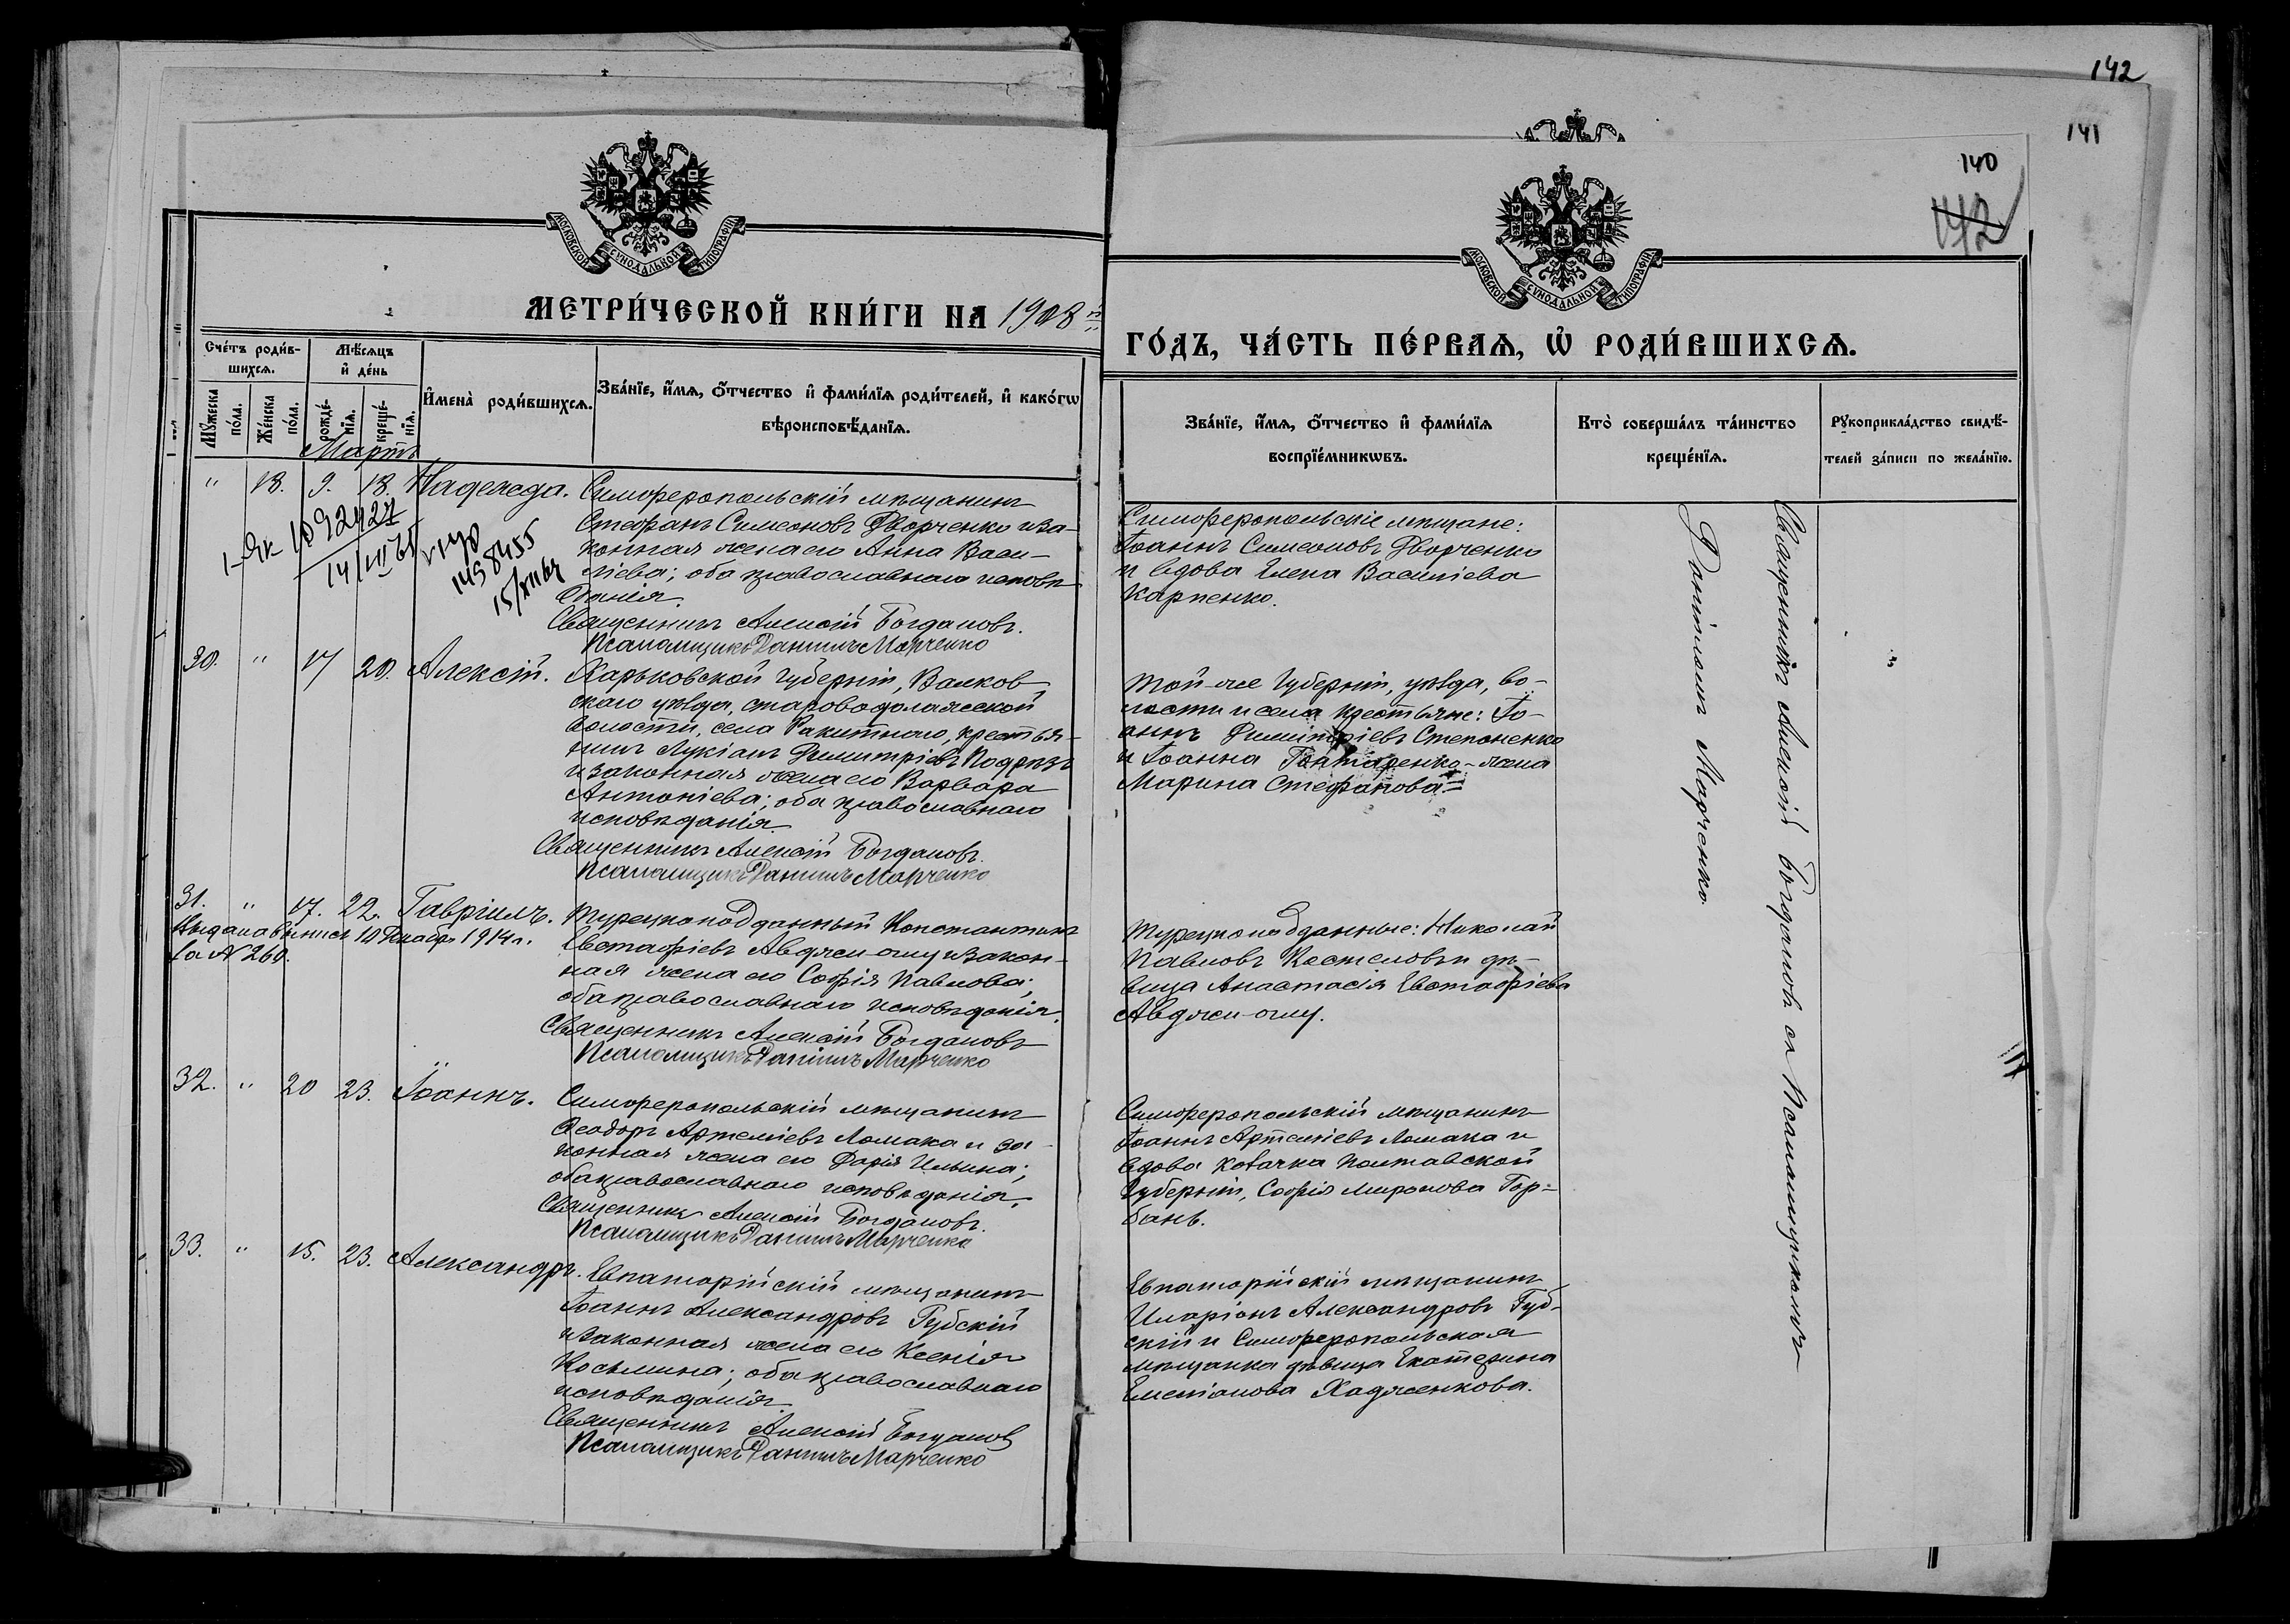 142
141
140
142
МОСКОВСКОЙ СУНОДАЛЬНОЙ ТИПОГРАФІИ
МОСКОВСКОЙ СУНОДАЛЬНОЙ ТИПОГРАФІИ
МЕТРИ́ЧЕСКОЙ КНИ́ГИ НА 1908 й
ГО́ДЪ, ЧА́СТЬ ПЕ́РВАѦ, Ѡ҆ РОДИ́ВШИХСѦ.
Сче́тъ роди́в-
шихсѧ.
Мѣ́сяцъ
и҆ де́нь
Мꙋ́жеска по́ла.
Же́нска по́ла.
рожде́-нїѧ.
креще́-нїѧ.
И҆мена̀ роди́вшихсѧ.
Зва́нїе, и҆́мѧ, ѻ҆́тчество и҆ фами́лїѧ роди́телей, и҆ како́гѡ
вѣроисповѣ́данїѧ.
Зва́нїе, и҆́мѧ, ѻ҆́тчество и҆ фами́лїѧ
воспрїе́мникѡвъ.
Кто̀ соверша́лъ та́инство
креще́нїѧ.
Рꙋкоприкла́дство свидѣ́-
телей за́писи по жела́нїю.
Мартъ
" 18. 9. 18. Надежда. Симферопольскій мѣщанинъ
Стефанъ Симеоновъ Дворченко и за-
конная жена его Анна Васи-
ліева; оба православнаго исповѣ-
данія.
Священникъ Алексій Богдановъ.
Псаломщикъ Даніилъ Марченко
Симферопольскіе мѣщане:
Іоаннъ Симеоновъ Дворченко
и вдова Елена Василіева
Карпенко.
30. " 17 20. Алексій. Харьковской губерніи, Валков-
скаго уѣзда, староводолажской
волости, села Ракитнаго, крестья-
нинъ Лукіанъ Димитріевъ Подрѣзъ
и законная жена его Варвара
Антоніева; оба православнаго
исповѣданія.
Священникъ Алексій Богдановъ.
Псаломщикъ Даніилъ Марченко
Той-же губерніи, уѣзда, во-
лости и села крестьяне: Іо-
аннъ Димітріевъ Степоненко
и Іоанна Гонтаренко-жена
Марина Стефанова
31. " 17. 22. Гавріилъ. Турецкоподданный Константинъ
Выдана выпись 10 Декабр. 1914 г.
за № 260.
Евстафіевъ Авджи-оглу и закон-
ная жена его Софія Павлова;
оба православнаго исповѣданія.
Священникъ Алексій Богдановъ
Псаломщикъ Даніилъ Марченко
Турецкоподданные: Николай
Павловъ Костеловъ и дѣ-
вица Анастасія Евстафіева
Авджи-оглу.
32. " 20 23. Іоаннъ. Симферопольскій мѣщанинъ
Ѳеодоръ Артеміевъ Ломака и за-
конная жена его Дарія Ильина;
оба православнаго исповѣданія.
Священникъ Алексій Богдановъ.
Псаломщикъ Даніилъ Марченко
Симферопольскій мѣщанинъ
Іоаннъ Артеміевъ Ломака и
вдова козачка Полтавской
губерніи, Софія Миронова Гор-
бань.
33. " 15. 23. Александръ. Евпаторійскій мѣщанинъ
Іоаннъ Александровъ Губскій
и законная жена его Ксенія
Косьмина; оба православнаго
исповѣданія.
Священникъ Алексій Богдановъ
Псаломщикъ Даніилъ Марченко
Евпаторійскій мѣщанинъ
Иларіонъ Александровъ Губ-
скій и Симферопольская
мѣщанка дѣвица Екатерина
Емеліанова Хадженкова.
Священникъ Алексій Богдановъ съ Псаломщикомъ
Даніиломъ Марченко.